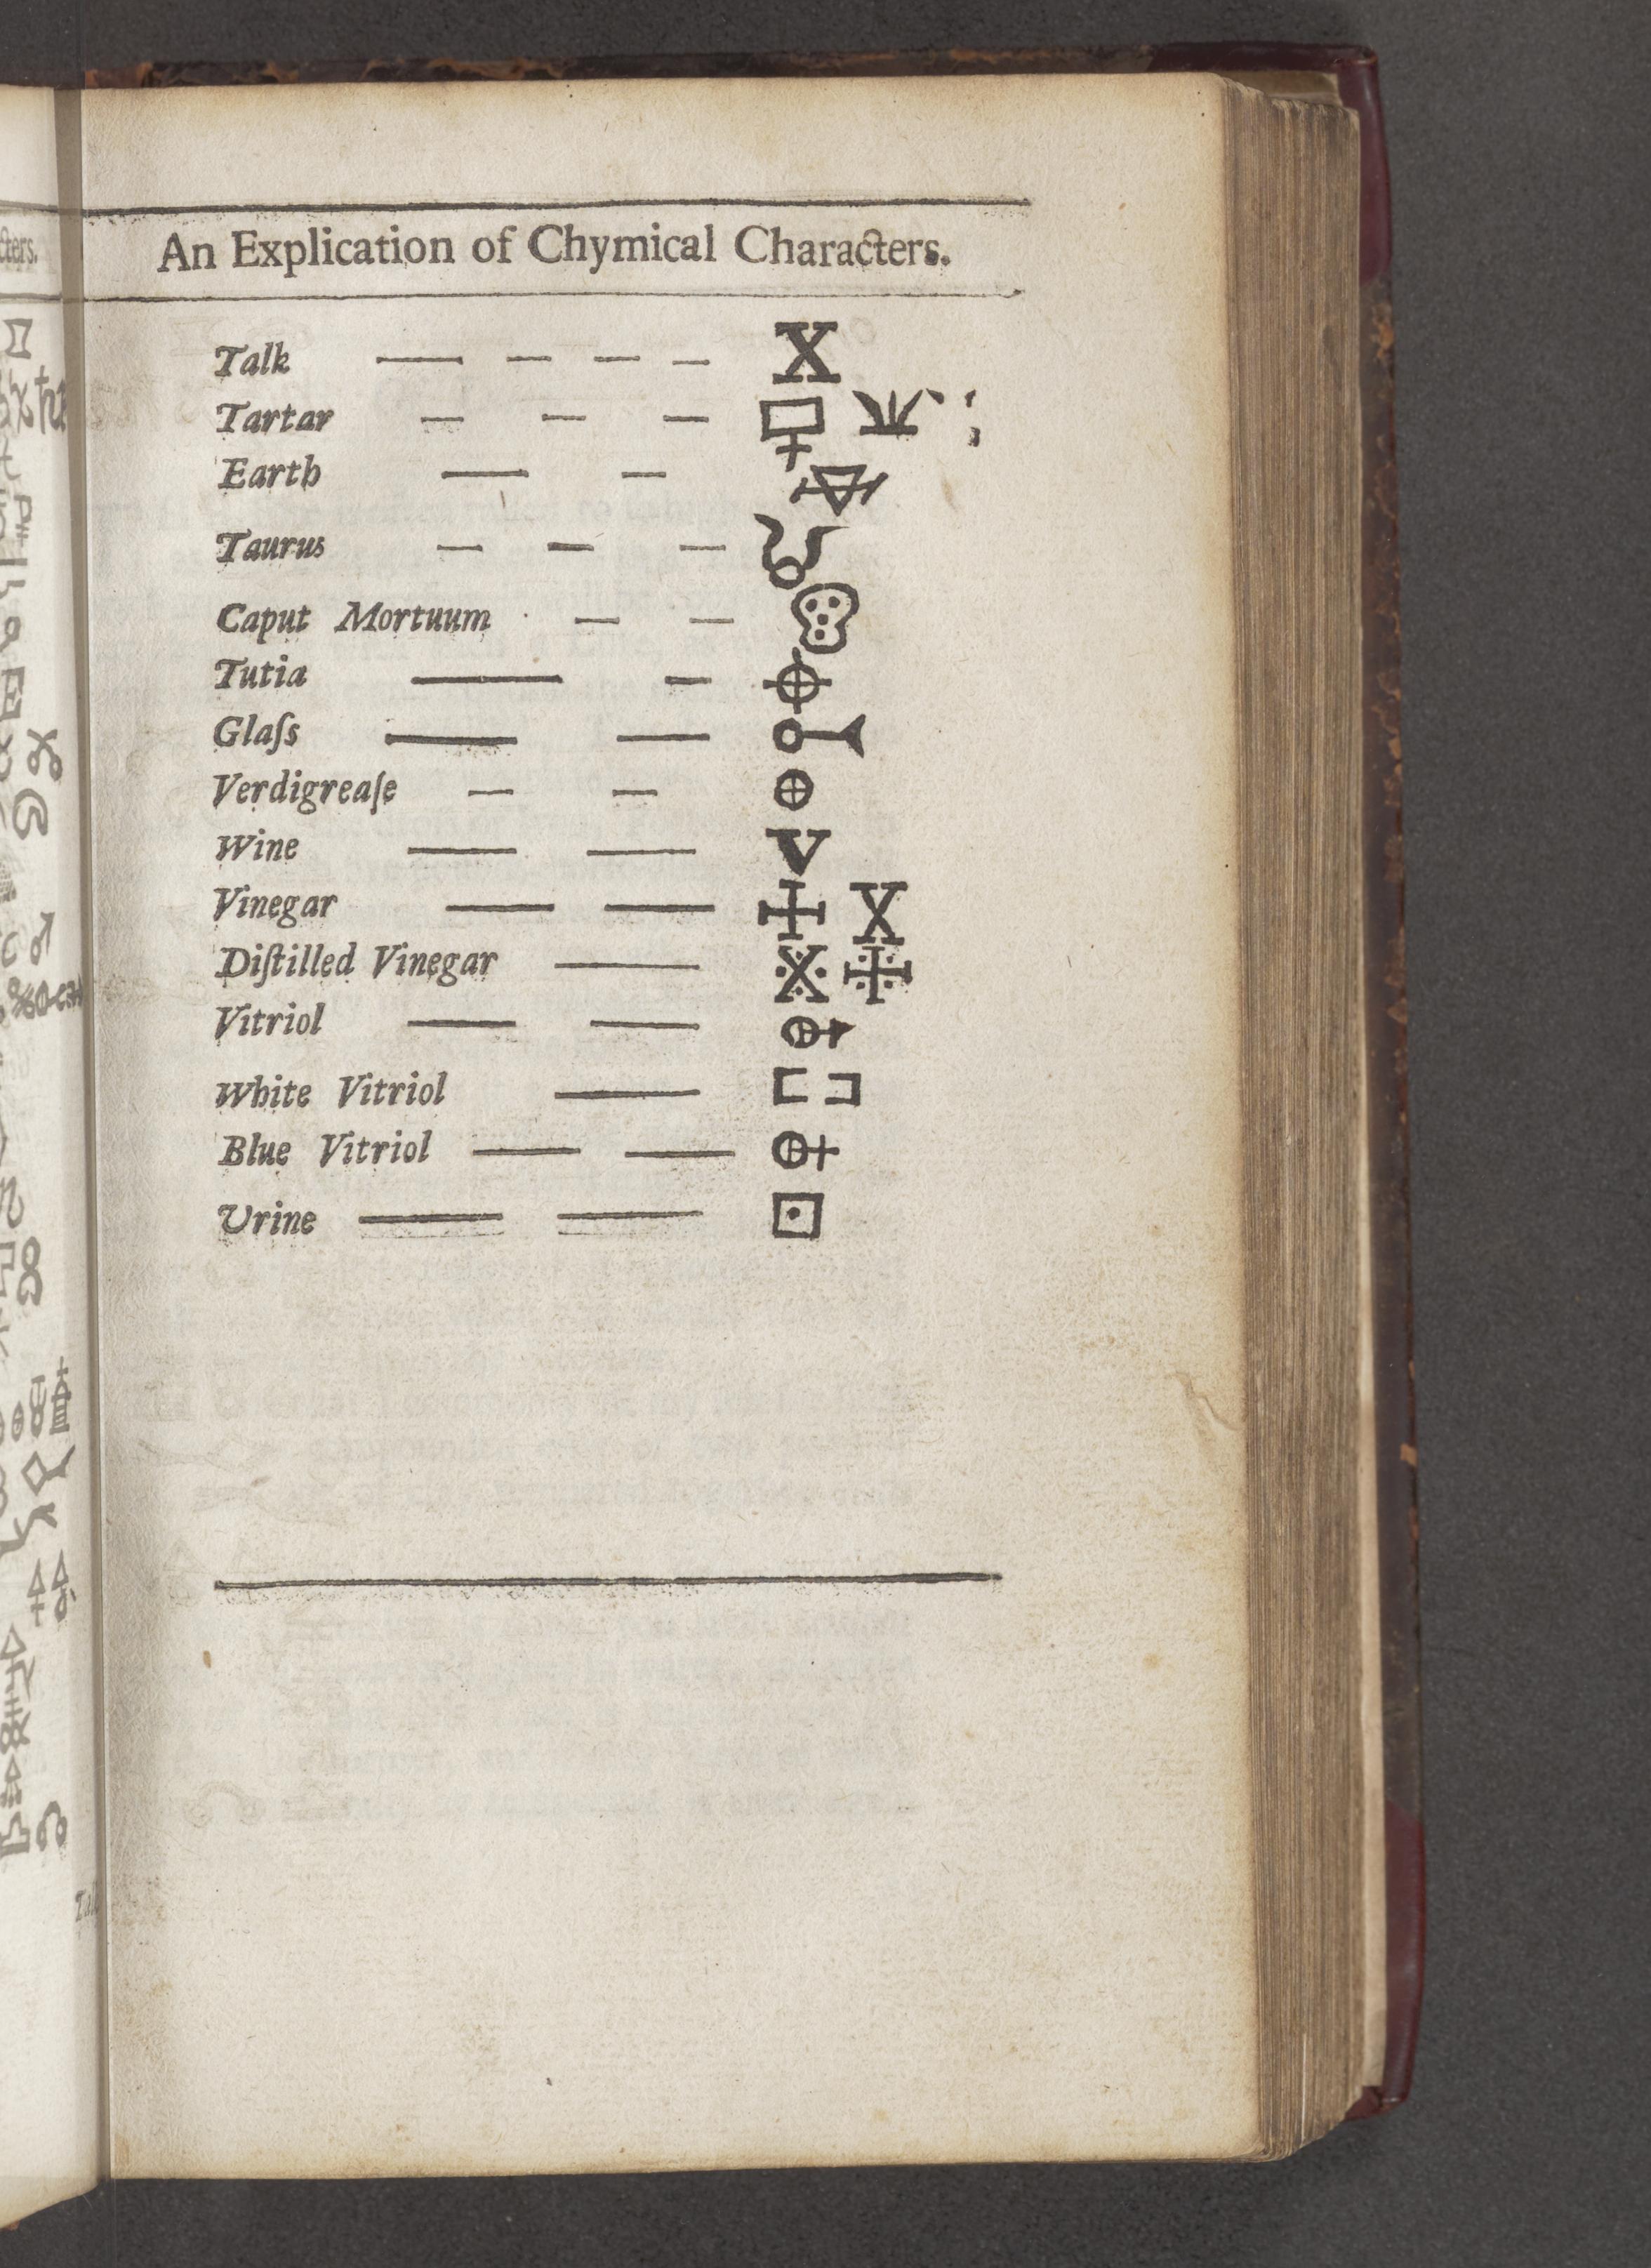 An Explication of Chymical Characters.
Talk — — — — X
Tartar — — —
Earth — —
Taurus — — — ♉
Caput Mortuum — —
Tutia — —
Glaſs — —
Verdigreaſe — — ⊕
Wine — — V
Vinegar — — ✢ X
Diſtilled Vinegar —
Vitriol — —
White Vitriol —
Blue Vitriol — —
Urine — — ⊡